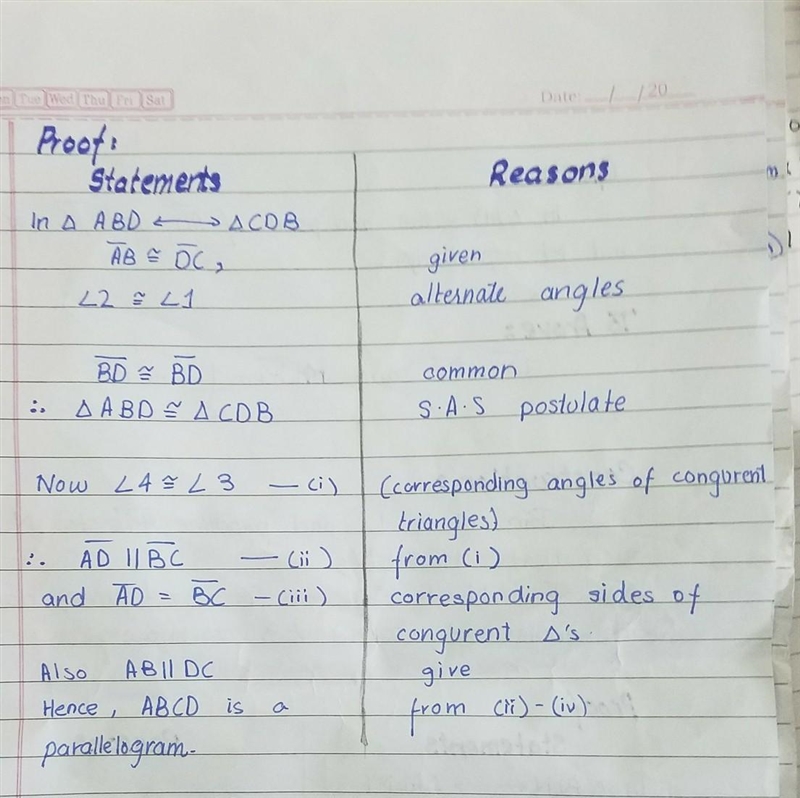 Tue Wed Thu Fri Sat Date: __/__/20__
Proof:
Statements Reasons
In Δ ABD ⟷ Δ CDB
A̅B̅ ≅ D̅C̅, given
∠2 ≅ ∠1 alternate angles
B̅D̅ ≅ B̅D̅ common
∴ Δ ABD ≅ Δ CDB S.A.S postulate
Now ∠4 ≅ ∠3 — (i) (corresponding angles of congurent
triangles)
∴ A̅D̅ || B̅C̅ — (ii) from (i)
and A̅D̅ = B̅C̅ — (iii) corresponding sides of
congurent Δ's.
Also AB || DC give
Hence, ABCD is a from (ii) - (iv).
parallelogram.